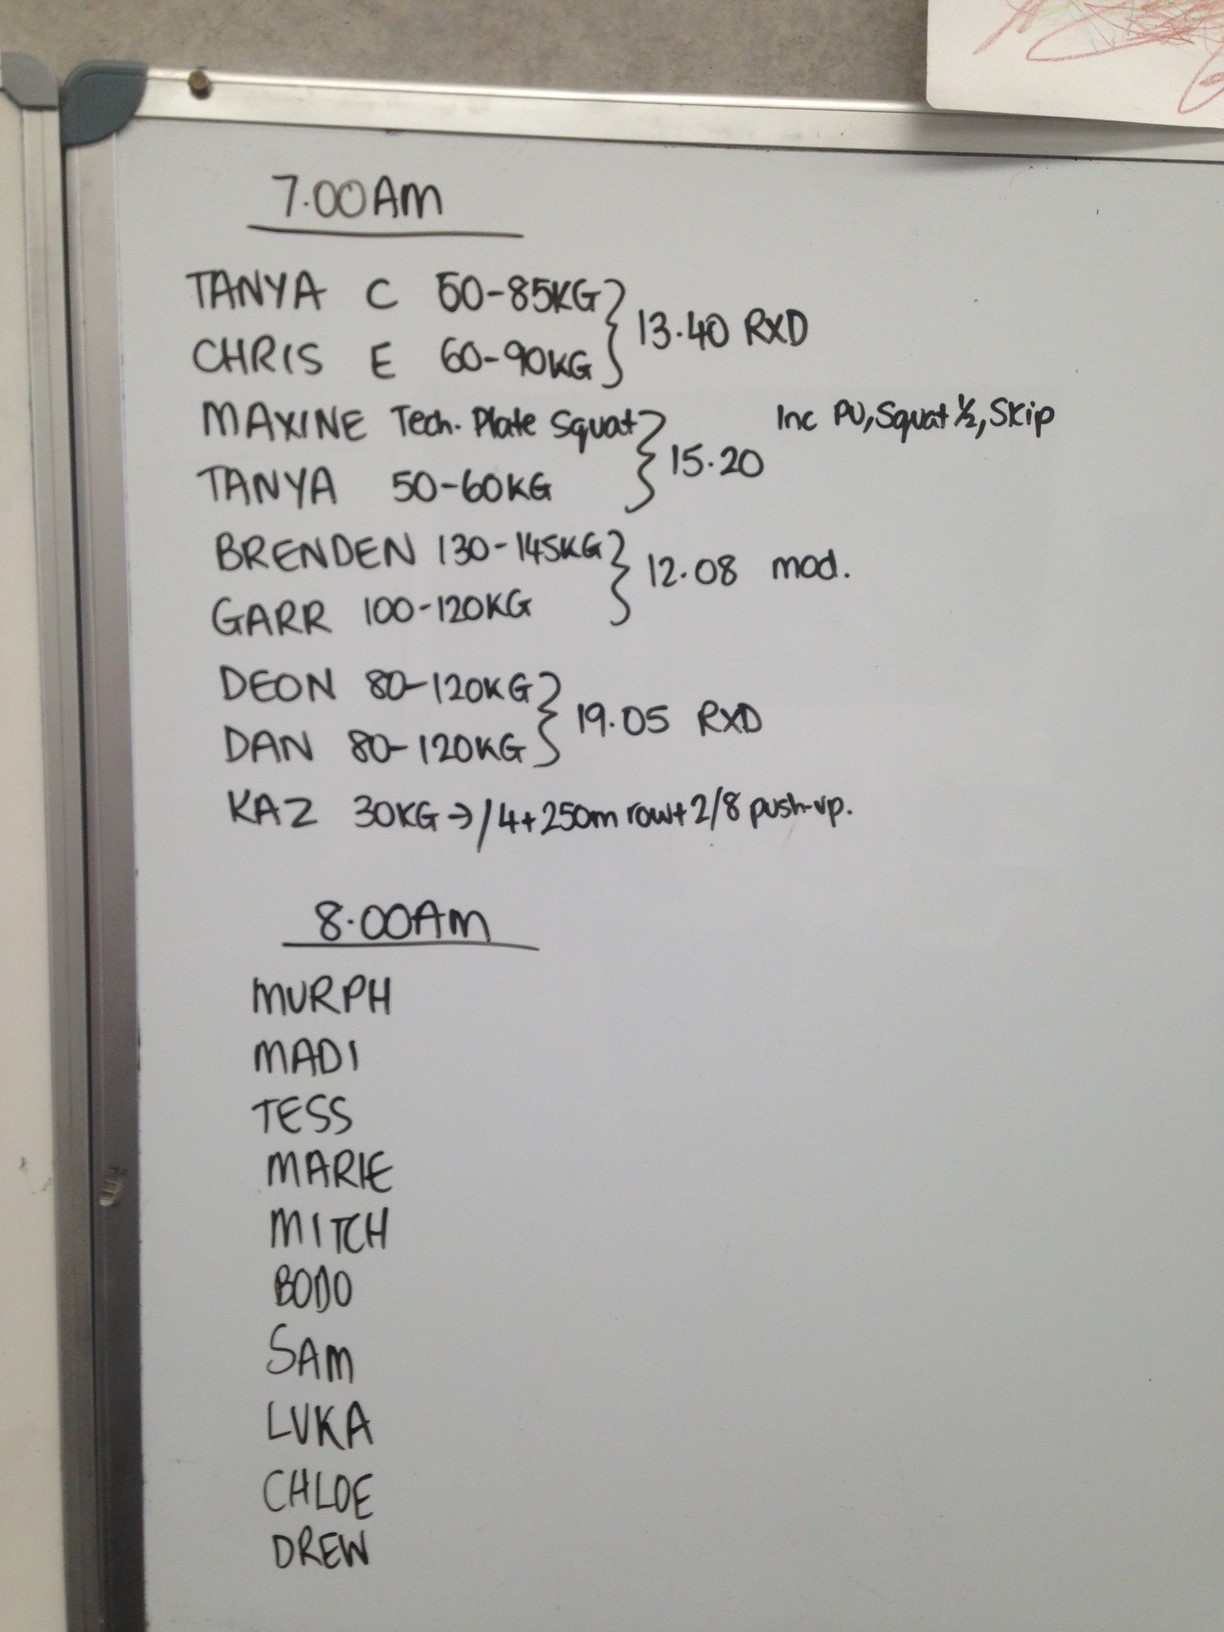 7.00AM
TANYA C 50-85KG } 13.40 RXD
CHRIS E 60-90KG
MAXINE Tech. Plate Squat } 15.20 Inc PU, Squat ½, Skip
TANYA 50-60KG
BRENDEN 130-145KG } 12.08 mod.
GARR 100-120KG
DEON 80-120KG } 19.05 RXD
DAN 80-120KG
KAZ 30KG → / 4+250m row+ 2/8 push-up.
8.00AM
MURPH
MADI
TESS
MARIE
MITCH
BODO
SAM
LUKA
CHLOE
DREW